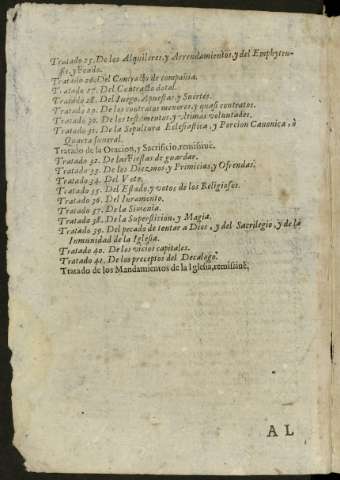 Tratado 25. De los Alquileres, y Arrendamientos, y del Emphyteu-
sis, y Feudo.
Tratado 26. Del Contracto de compañia.
Tratado 27. Del Contracto dotal.
Tratado 28. Del Juego, Apuestas y Suertes.
Tratado 29. De los contratos menores, y quasi contratos.
Tratado 30. De los testamentos, y ultimas voluntades.
Tratado 31. De la Sepultura Eclesiastica, y Porcion Canonica, ò
Quarta funeral.
Tratado de la Oracion, y Sacrificio, remissiuè.
Tratado 32. De las Fiestas de guardar.
Tratado 33. De los Diezmos, y Primicias, y Ofrendas.
Tratado 34. Del Voto.
Tratado 35. Del Estado, y votos de los Religiosos.
Tratado 36. Del Iuramento.
Tratado 37. De la Simonia.
Tratado 38. De la Supersticion, y Magia.
Tratado 39. Del pecado de tentar a Dios, y del Sacrilegio, y de la
Inmunidad de la Iglesia.
Tratado 40. De los vicios capitales.
Tratado 41. De los preceptos del Decalogo.
Tratado de los Mandamientos de la Iglesia, remissiuè.
AL